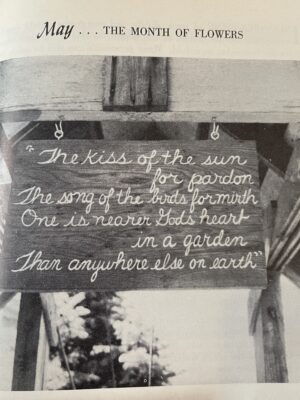 May . . . THE MONTH OF FLOWERS
"The kiss of the sun
for pardon
The song of the birds for mirth
One is nearer God's heart
in a garden
Than anywhere else on earth"